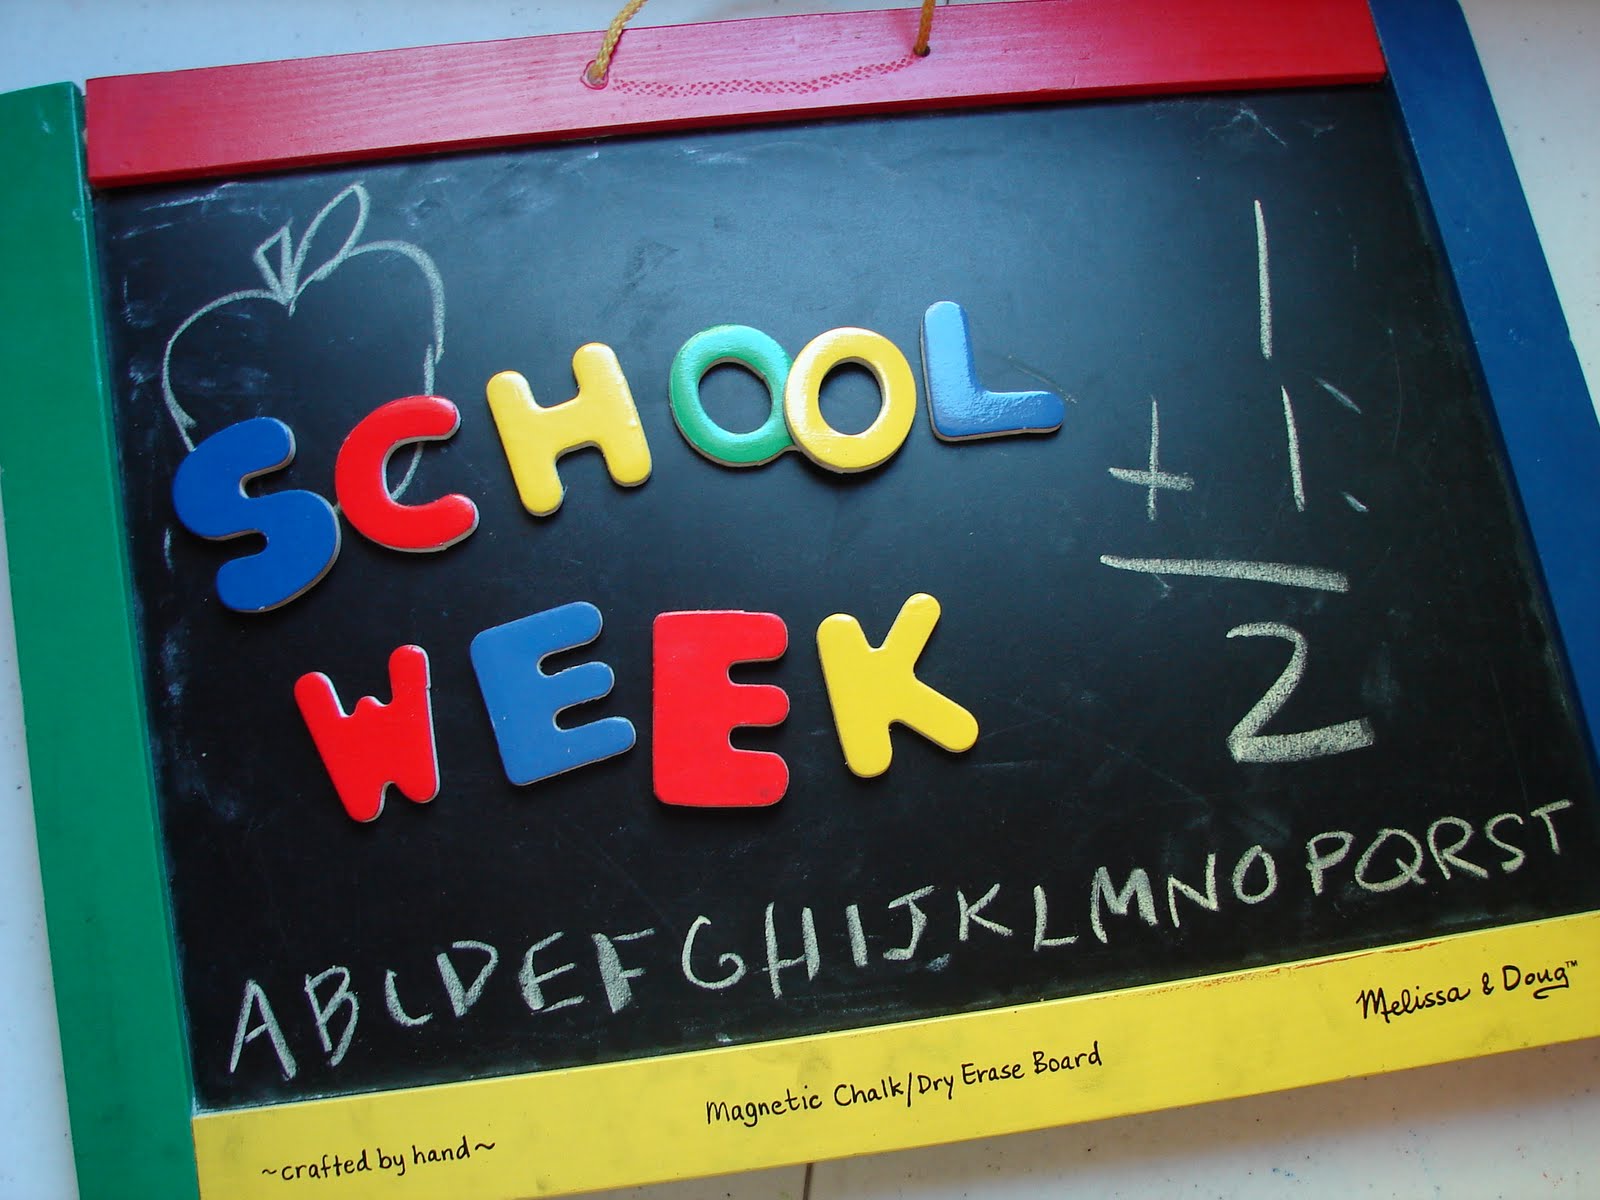 SCHOOL
WEEK
1
+ 1
2
ABCDEFGHIJKLMNOPQRST
Melissa & Doug™
Magnetic Chalk/Dry Erase Board
~crafted by hand~